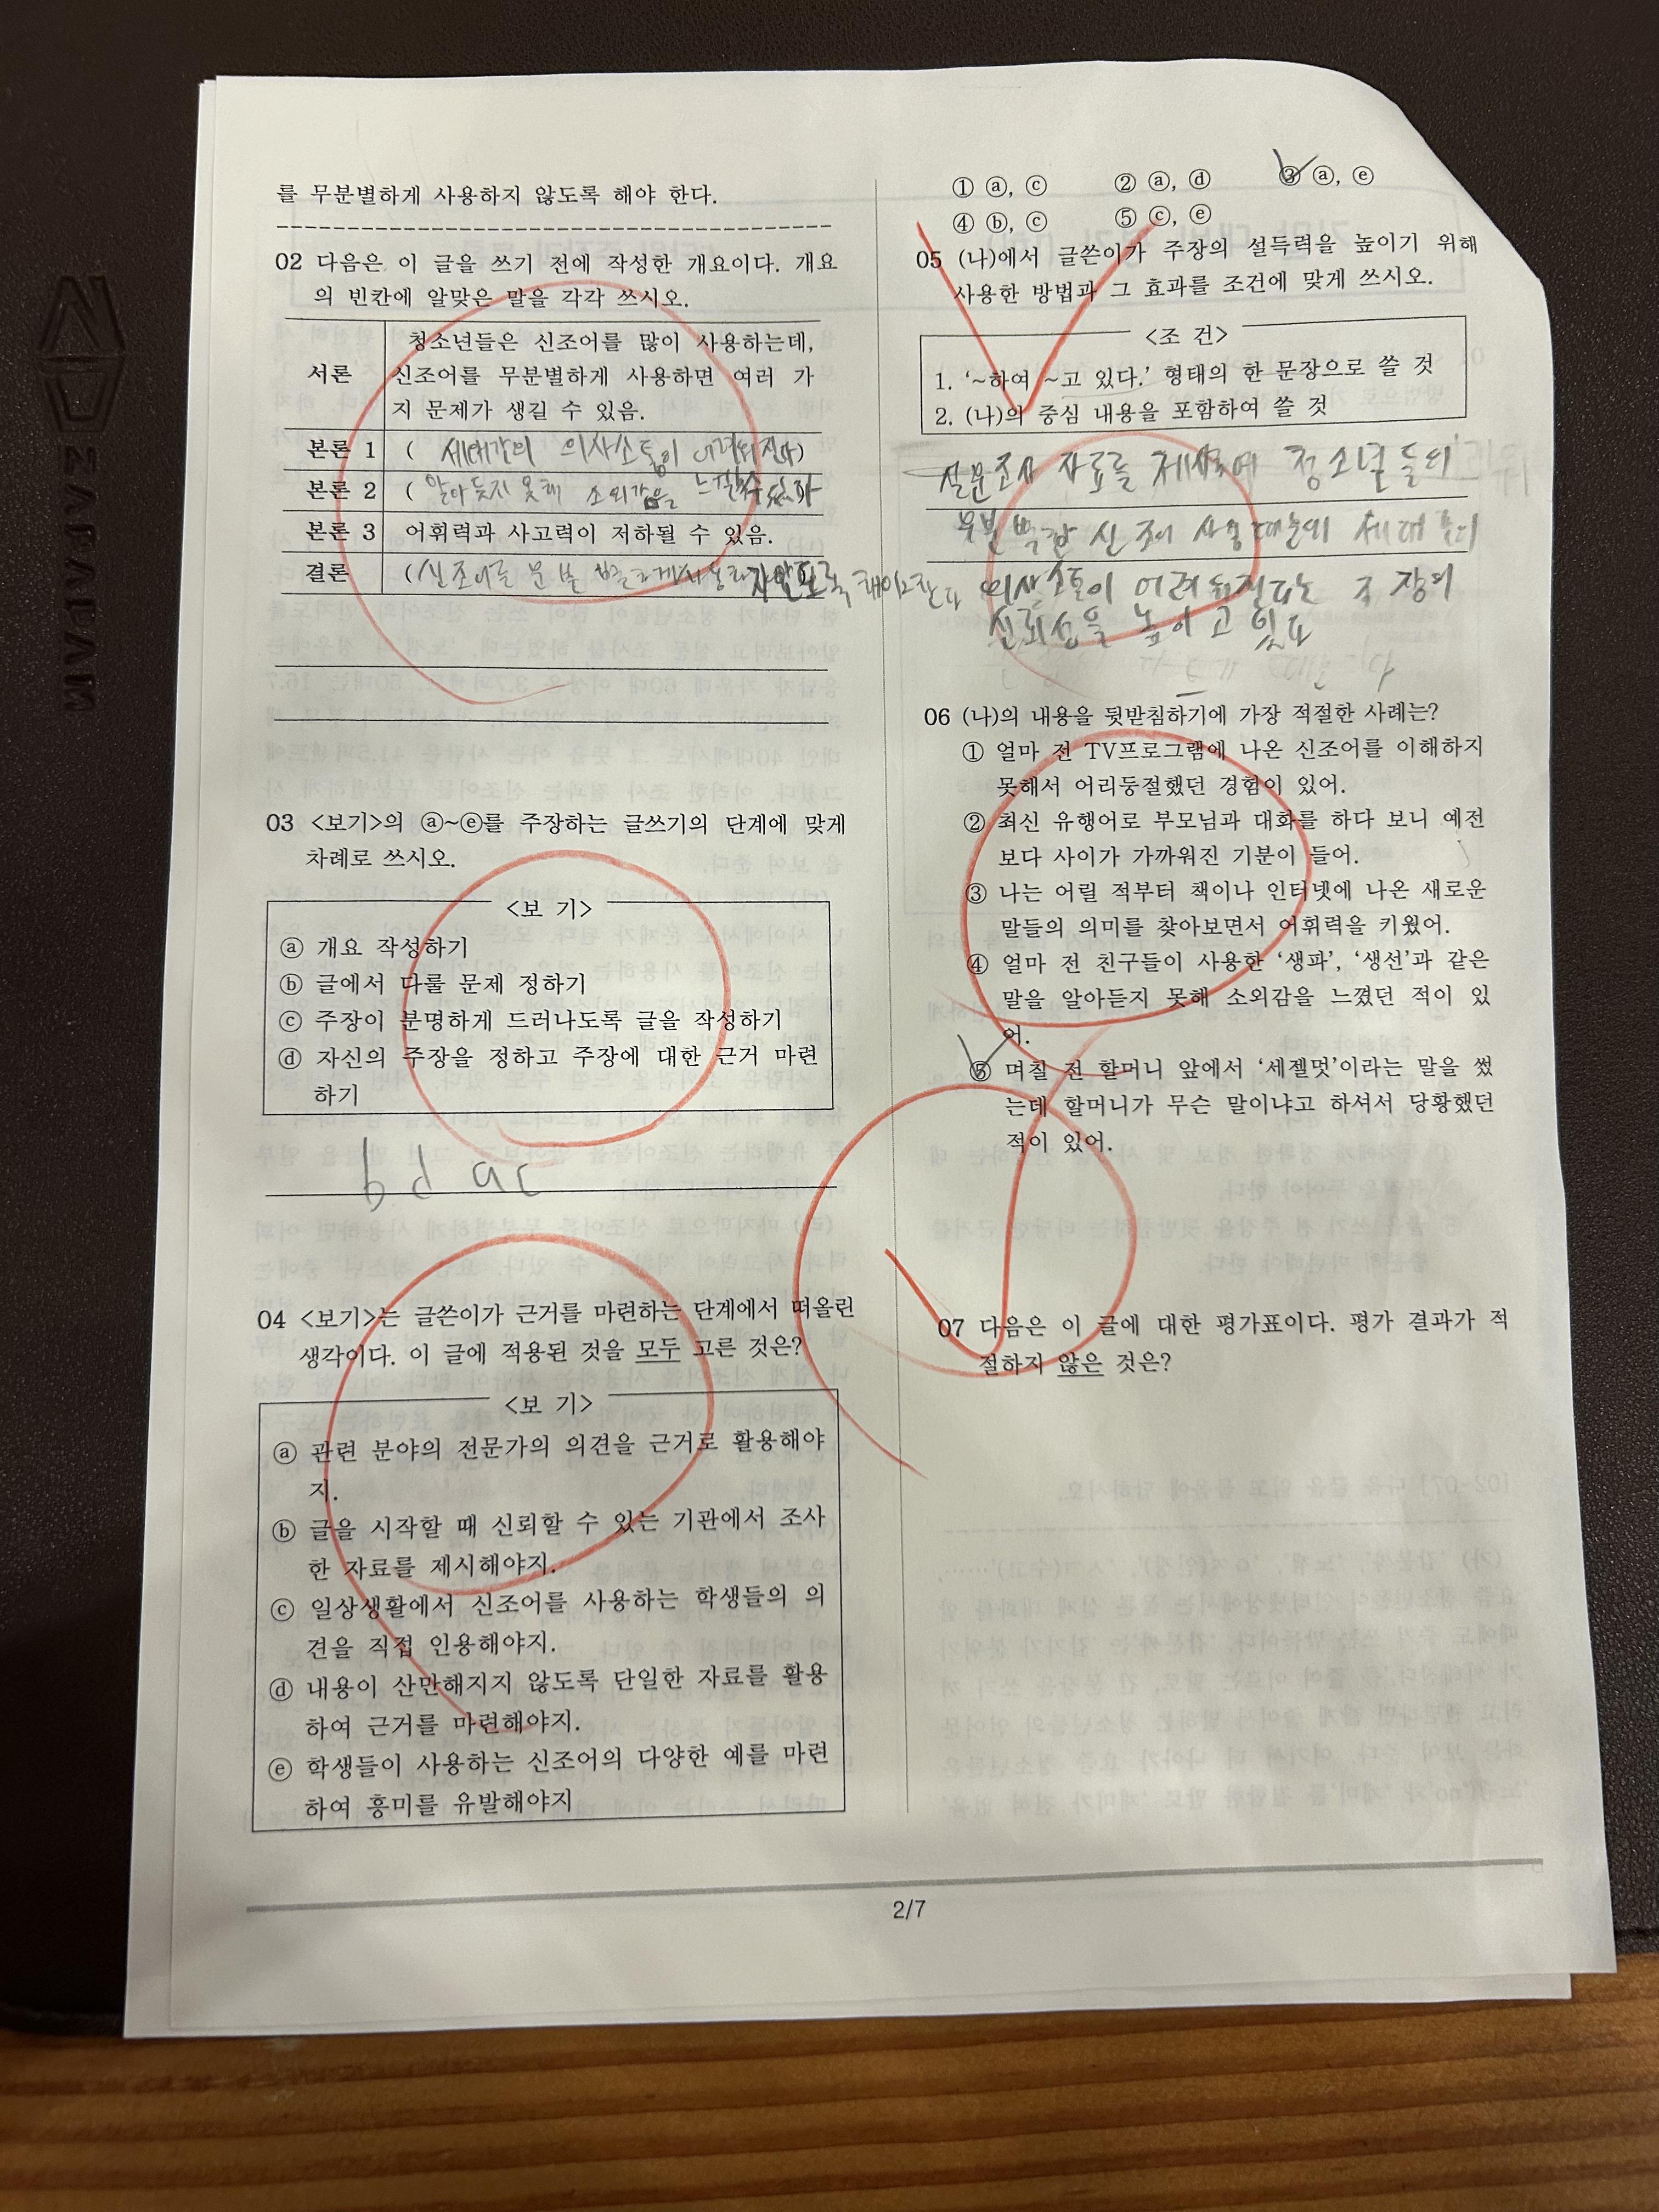 를 무분별하게 사용하지 않도록 해야 한다.
02 다음은 이 글을 쓰기 전에 작성한 개요이다. 개요
의 빈칸에 알맞은 말을 각각 쓰시오.
서론
청소년들은 신조어를 많이 사용하는데,
신조어를 무분별하게 사용하면 여러 가
지 문제가 생길 수 있음.
본론 1 ( 세대간의 의사소통이 어려워진다)
본론 2 ( 알아듣지 못해 소외감을 느낄수 있다
본론 3 어휘력과 사고력이 저하될 수 있음.
결론 (신조어를 무분별하게 사용하지않도록 해야한다
03 <보기>의 ⓐ~ⓔ를 주장하는 글쓰기의 단계에 맞게
차례로 쓰시오.
<보 기>
ⓐ 개요 작성하기
ⓑ 글에서 다룰 문제 정하기
ⓒ 주장이 분명하게 드러나도록 글을 작성하기
ⓓ 자신의 주장을 정하고 주장에 대한 근거 마련
하기
b d a c
04 <보기>는 글쓴이가 근거를 마련하는 단계에서 떠올린
생각이다. 이 글에 적용된 것을 모두 고른 것은?
<보 기>
ⓐ 관련 분야의 전문가의 의견을 근거로 활용해야
지.
ⓑ 글을 시작할 때 신뢰할 수 있는 기관에서 조사
한 자료를 제시해야지.
ⓒ 일상생활에서 신조어를 사용하는 학생들의 의
견을 직접 인용해야지.
ⓓ 내용이 산만해지지 않도록 단일한 자료를 활용
하여 근거를 마련해야지.
ⓔ 학생들이 사용하는 신조어의 다양한 예를 마련
하여 흥미를 유발해야지
① ⓐ, ⓒ ② ⓐ, ⓓ ③ ⓐ, ⓔ
④ ⓑ, ⓒ ⑤ ⓒ, ⓔ
05 (나)에서 글쓴이가 주장의 설득력을 높이기 위해
사용한 방법과 그 효과를 조건에 맞게 쓰시오.
<조 건>
1. ‘~하여 ~고 있다.’ 형태의 한 문장으로 쓸 것
2. (나)의 중심 내용을 포함하여 쓸 것
설문조사 자료를 청소년들의
신조어 사용 세대
의사소통이 어려워진다는 주장의
신뢰성을 높이고 있다
06 (나)의 내용을 뒷받침하기에 가장 적절한 사례는?
① 얼마 전 TV프로그램에 나온 신조어를 이해하지
못해서 어리둥절했던 경험이 있어.
② 최신 유행어로 부모님과 대화를 하다 보니 예전
보다 사이가 가까워진 기분이 들어.
③ 나는 어릴 적부터 책이나 인터넷에 나온 새로운
말들의 의미를 찾아보면서 어휘력을 키웠어.
④ 얼마 전 친구들이 사용한 ‘생파’, ‘생선’과 같은
말을 알아듣지 못해 소외감을 느꼈던 적이 있
어.
⑤ 며칠 전 할머니 앞에서 ‘세젤멋’이라는 말을 썼
는데 할머니가 무슨 말이냐고 하셔서 당황했던
적이 있어.
07 다음은 이 글에 대한 평가표이다. 평가 결과가 적
절하지 않은 것은?
2/7